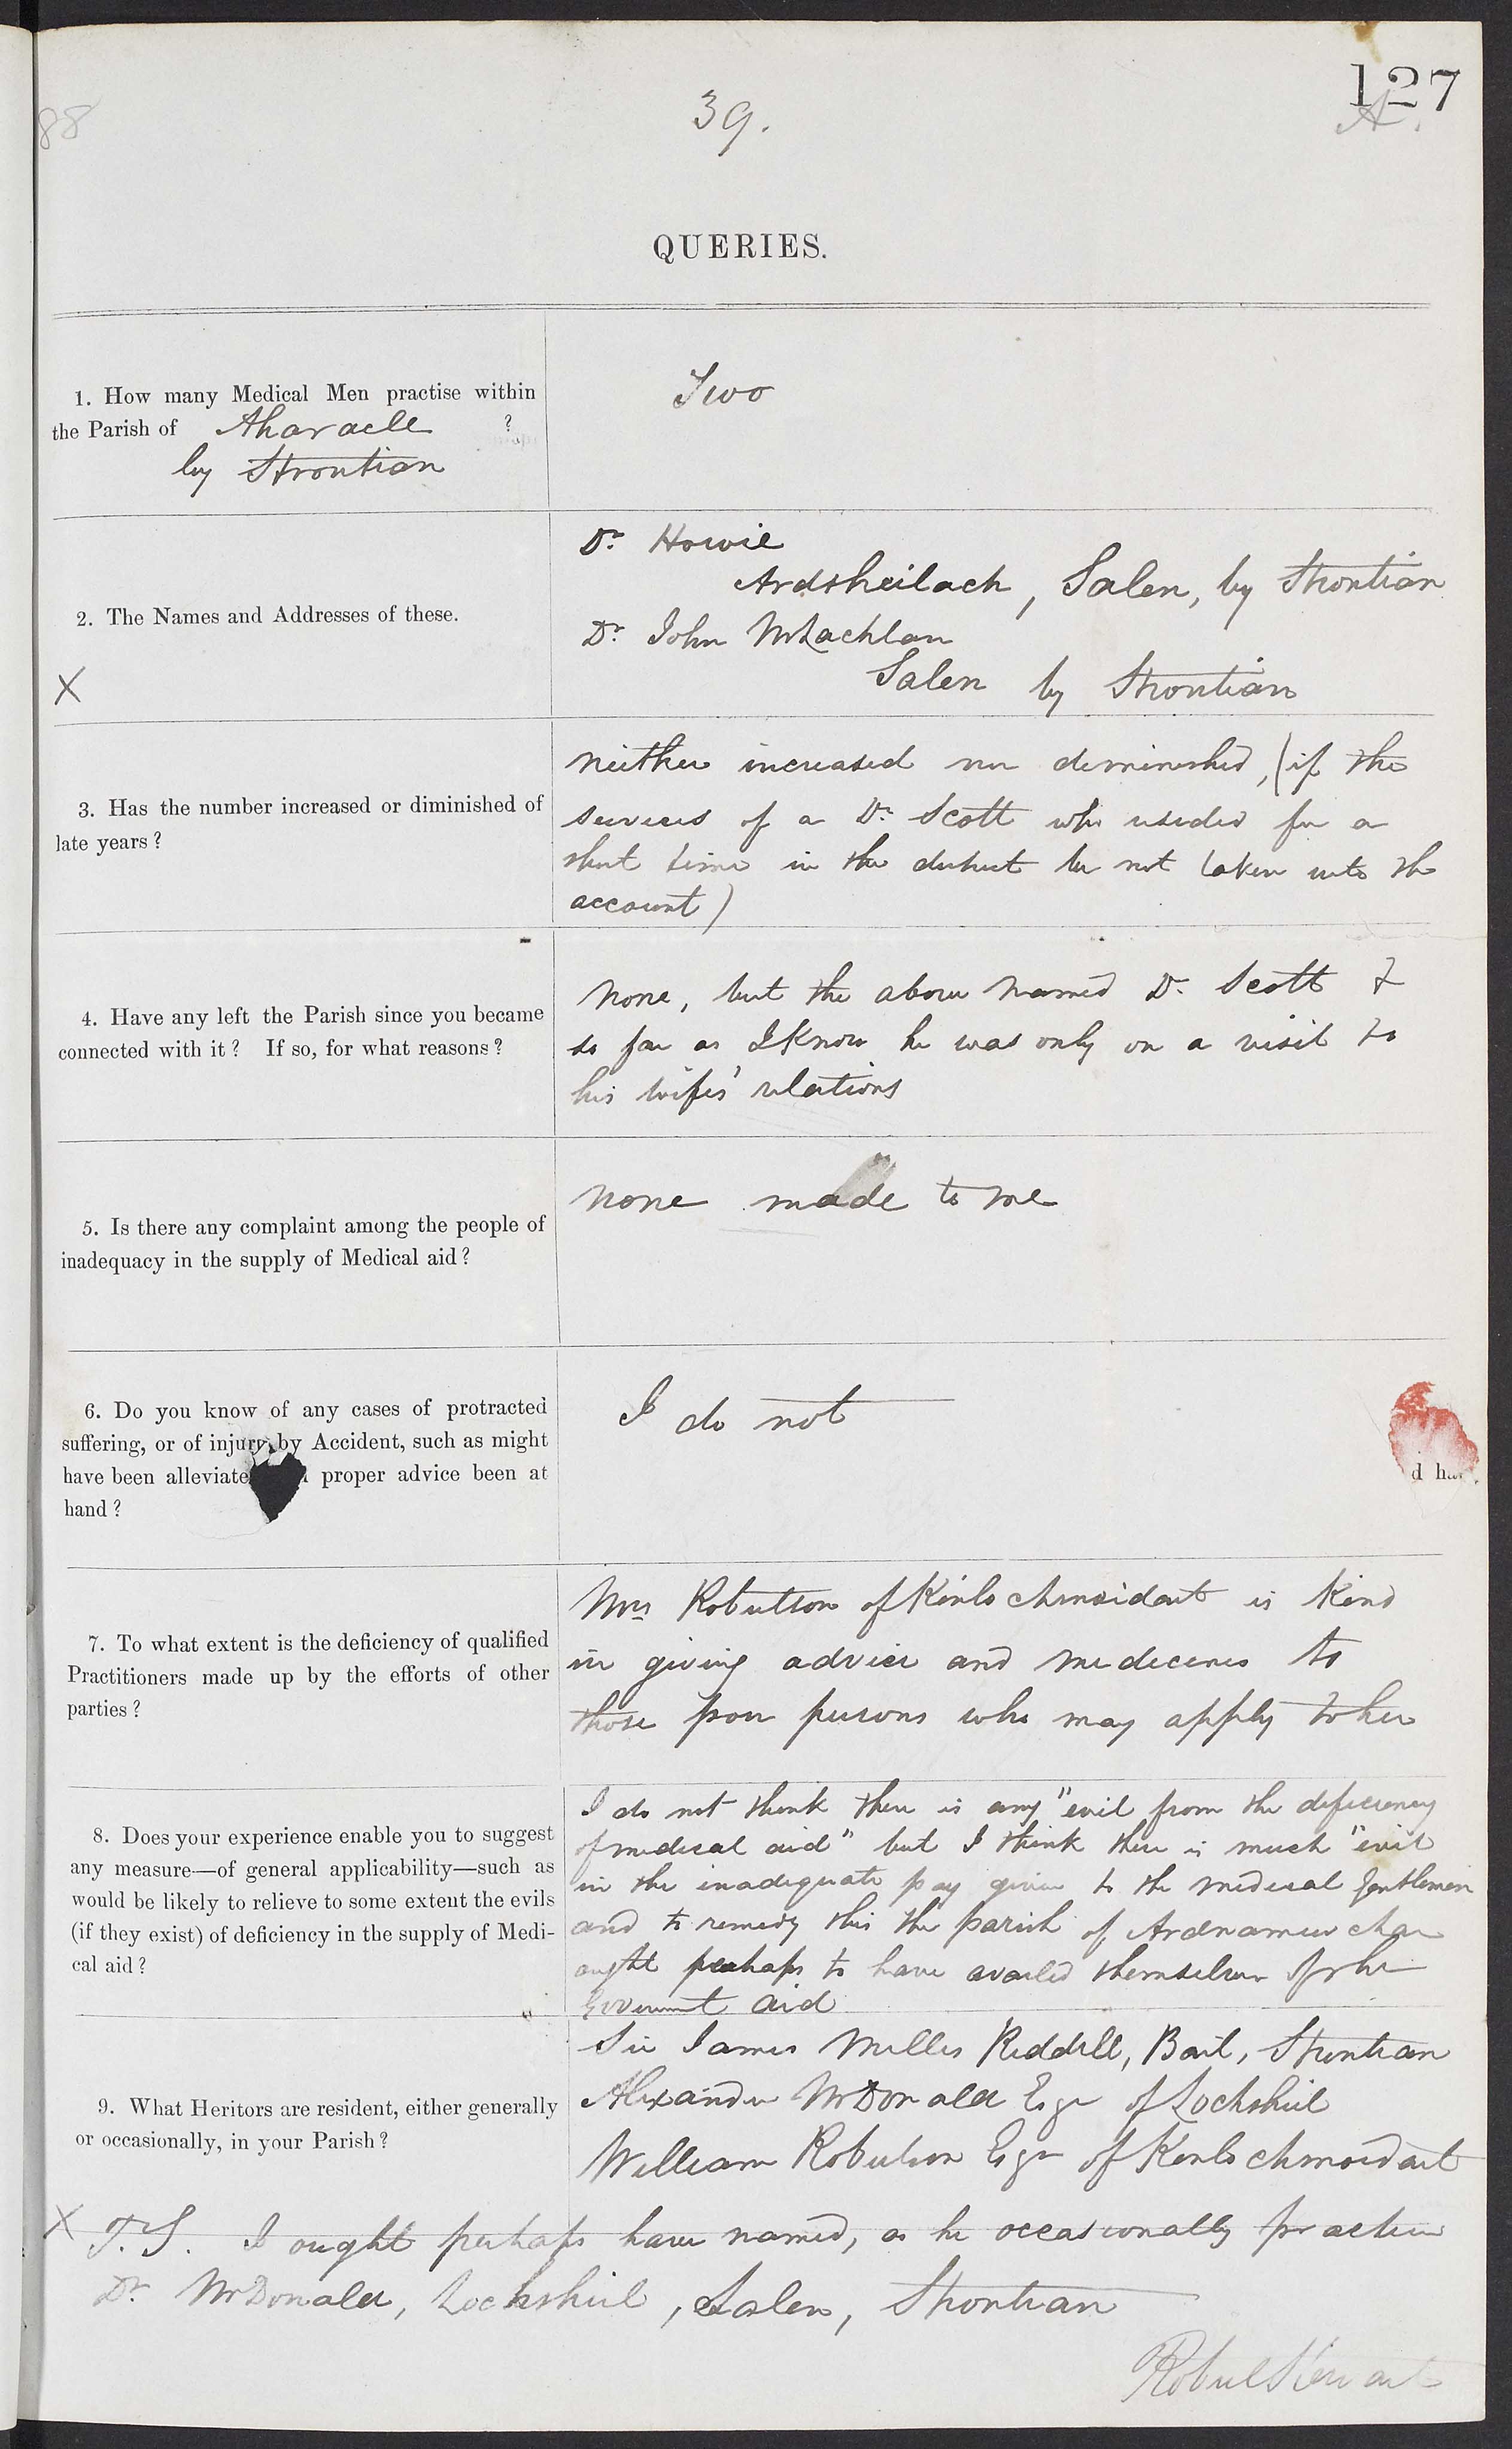 88
39.
127
A.
QUERIES.
1. How many Medical Men practise within
the Parish of Aharacle ?
by Strontian
Two
2. The Names and Addresses of these.
X
Dr. Howie
Ardsheilach, Salen, by Strontian
Dr. John McLachlan
Salen by Strontian
3. Has the number increased or diminished of
late years?
neither increased nor diminished, (if the
services of a Dr. Scott who resided for a
short time in the district be not taken into the
account)
4. Have any left the Parish since you became
connected with it? If so, for what reasons?
None, but the above named Dr. Scott &
so far as I know he was only on a visit to
his wifes' relations
5. Is there any complaint among the people of
inadequacy in the supply of Medical aid?
None made to me
6. Do you know of any cases of protracted
suffering, or of injury by Accident, such as might
have been alleviate proper advice been at
hand?
I do not
d ha
7. To what extent is the deficiency of qualified
Practitioners made up by the efforts of other
parties?
Mrs Robertson of Kinlochmoidart is kind
in giving advice and medecines to
those poor persons who may apply to her
8. Does your experience enable you to suggest
any measure—of general applicability—such as
would be likely to relieve to some extent the evils
(if they exist) of deficiency in the supply of Medi-
cal aid?
I do not think there is any "evil from the deficiency
of medical aid" but I think there is much "evil
in the inadequate pay given to the medical gentlemen
and to remedy this the parish of Ardnamurchan
ought perhaps to have availed themselves of the
Goverment aid
9. What Heritors are resident, either generally
or occasionally, in your Parish?
Sir James Milles Riddell, Bart, Strontian
Alexander McDonald Esqr of Lochshiel
William Robertson Esqr of Kinlochmoidart
X P.S. I ought perhaps have named, as he occasionally practices
Dr. McDonald, Lochshiel, Salen, Strontian
Robert Stewart